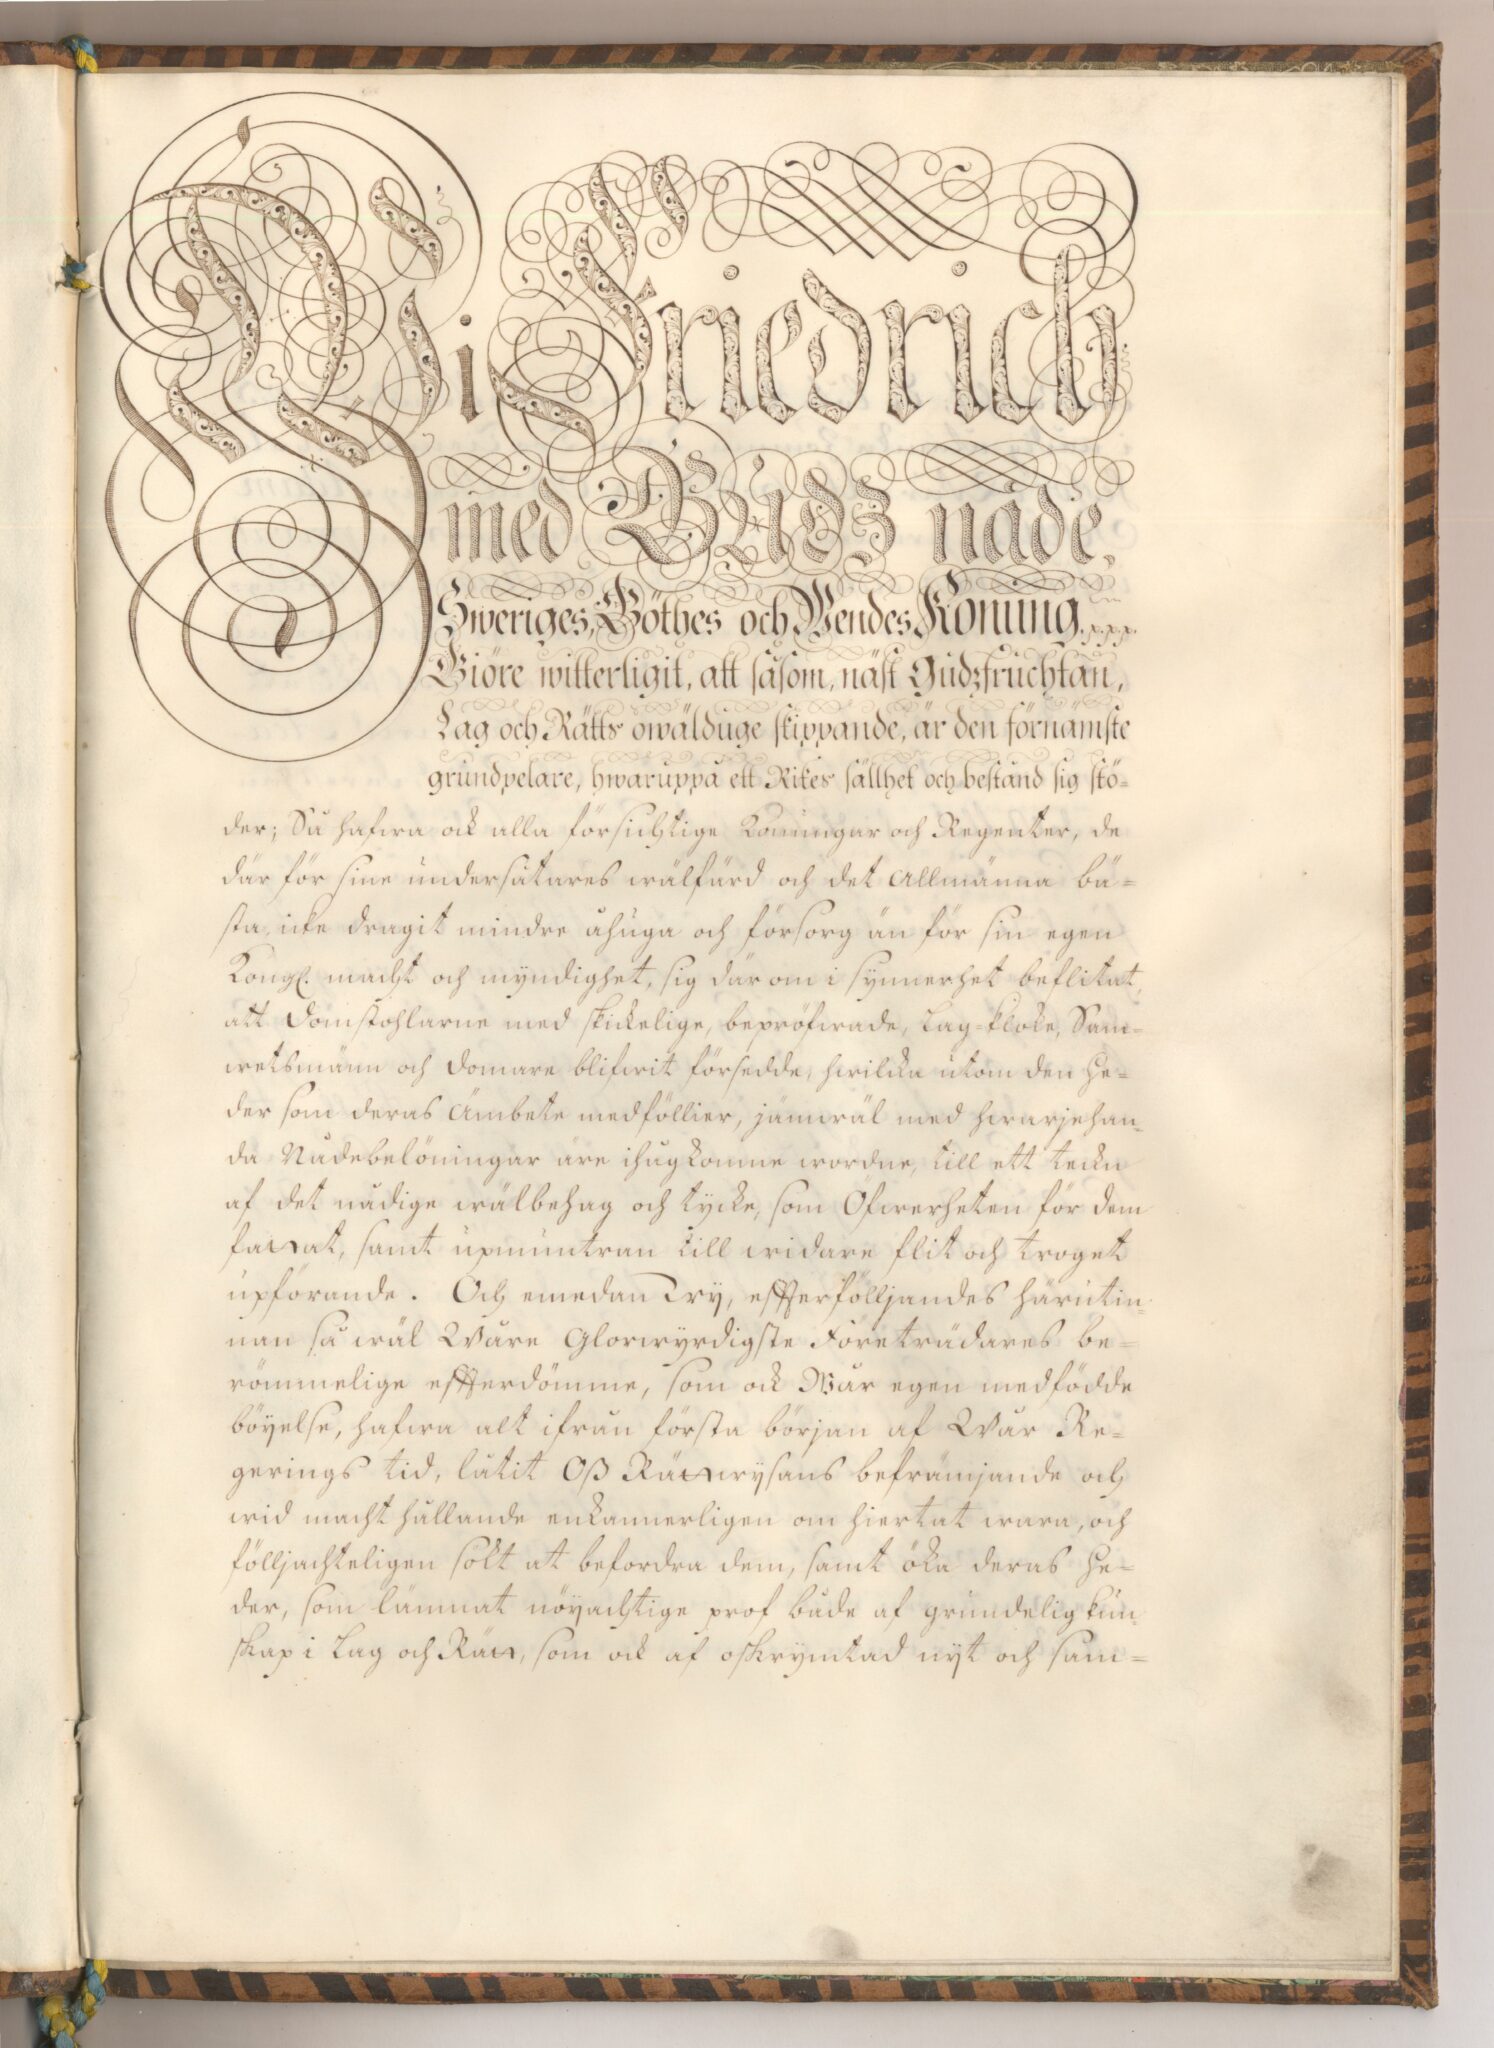 Wi Friedrich
med Gudz nåde,
Sweriges, Göthes och Wendes Konung. x.x.x.
Giöre witterligit, att såsom, näst Gudzfruchtan,
Lag och Rätts owälduge skippande, är den förnämste
grundpelare, hwaruppå ett Rikes sällhet och bestånd sig stö-
der; Så hafwa ock alla försichtige Konungar och Regenter, de
där för sine undersåtares wälfärd och det Allmänna bä-
sta, icke dragit mindre åhuga och försorg än för sin egen
Kongl. macht och myndighet, sig där om i synnerhet beflitat,
att Domstohlarne med skickelige, bepröfwade, Lag-kloke, Sam-
wetsmänn och Domare blifwit försedde, hwilcka utom den he-
der som deras Ämbete medföllier, jämwäl med hwarjehan-
da Nådebelöningar äre ihugkomne wordne, till ett teckn
af det nådige wälbehag och tycke, som Öfwerheten för dem
fattat, samt upmuntran till widare flit och troget
upförande. Och emedan Wy, effterfölljandes härutin-
nan så wäl Wåre Glorwyrdigste Företrädares be-
römmelige effterdömme, som ock Wår egen medfödde
böyelse, hafwa alt ifrån första början af Wår Re-
gerings tid, låtit Oß Rättwysans befrämjande och
wid macht hållande enkannerligen om hiertat wara, och
fölljachteligen sökt at befordra dem, samt öka deras he-
der, som lämnat nöyachtige prof både af grundelig kun-
skap i Lag och Rätt, som ock af oskrymtad nyt och sam-